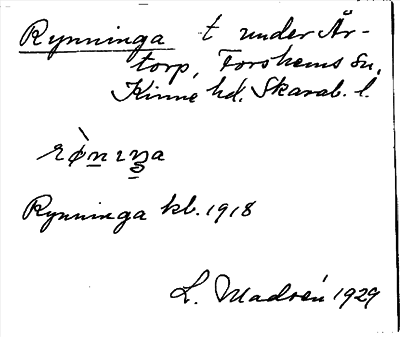 Rynninga t under År-
torp, Forshems sn,
Kinne hd. Skarab. l.
rø̀n̲ɪŋa
Rynninga kb. 1918
L. Modéen 1929